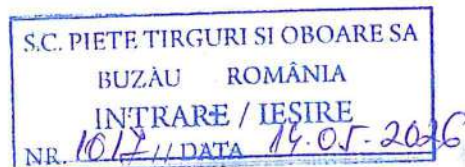 S.C. PIEȚE TIRGURI SI OBOARE SA
BUZĂU ROMÂNIA
INTRARE / IEȘIRE
NR. 1017 // DATA 14.05.2026